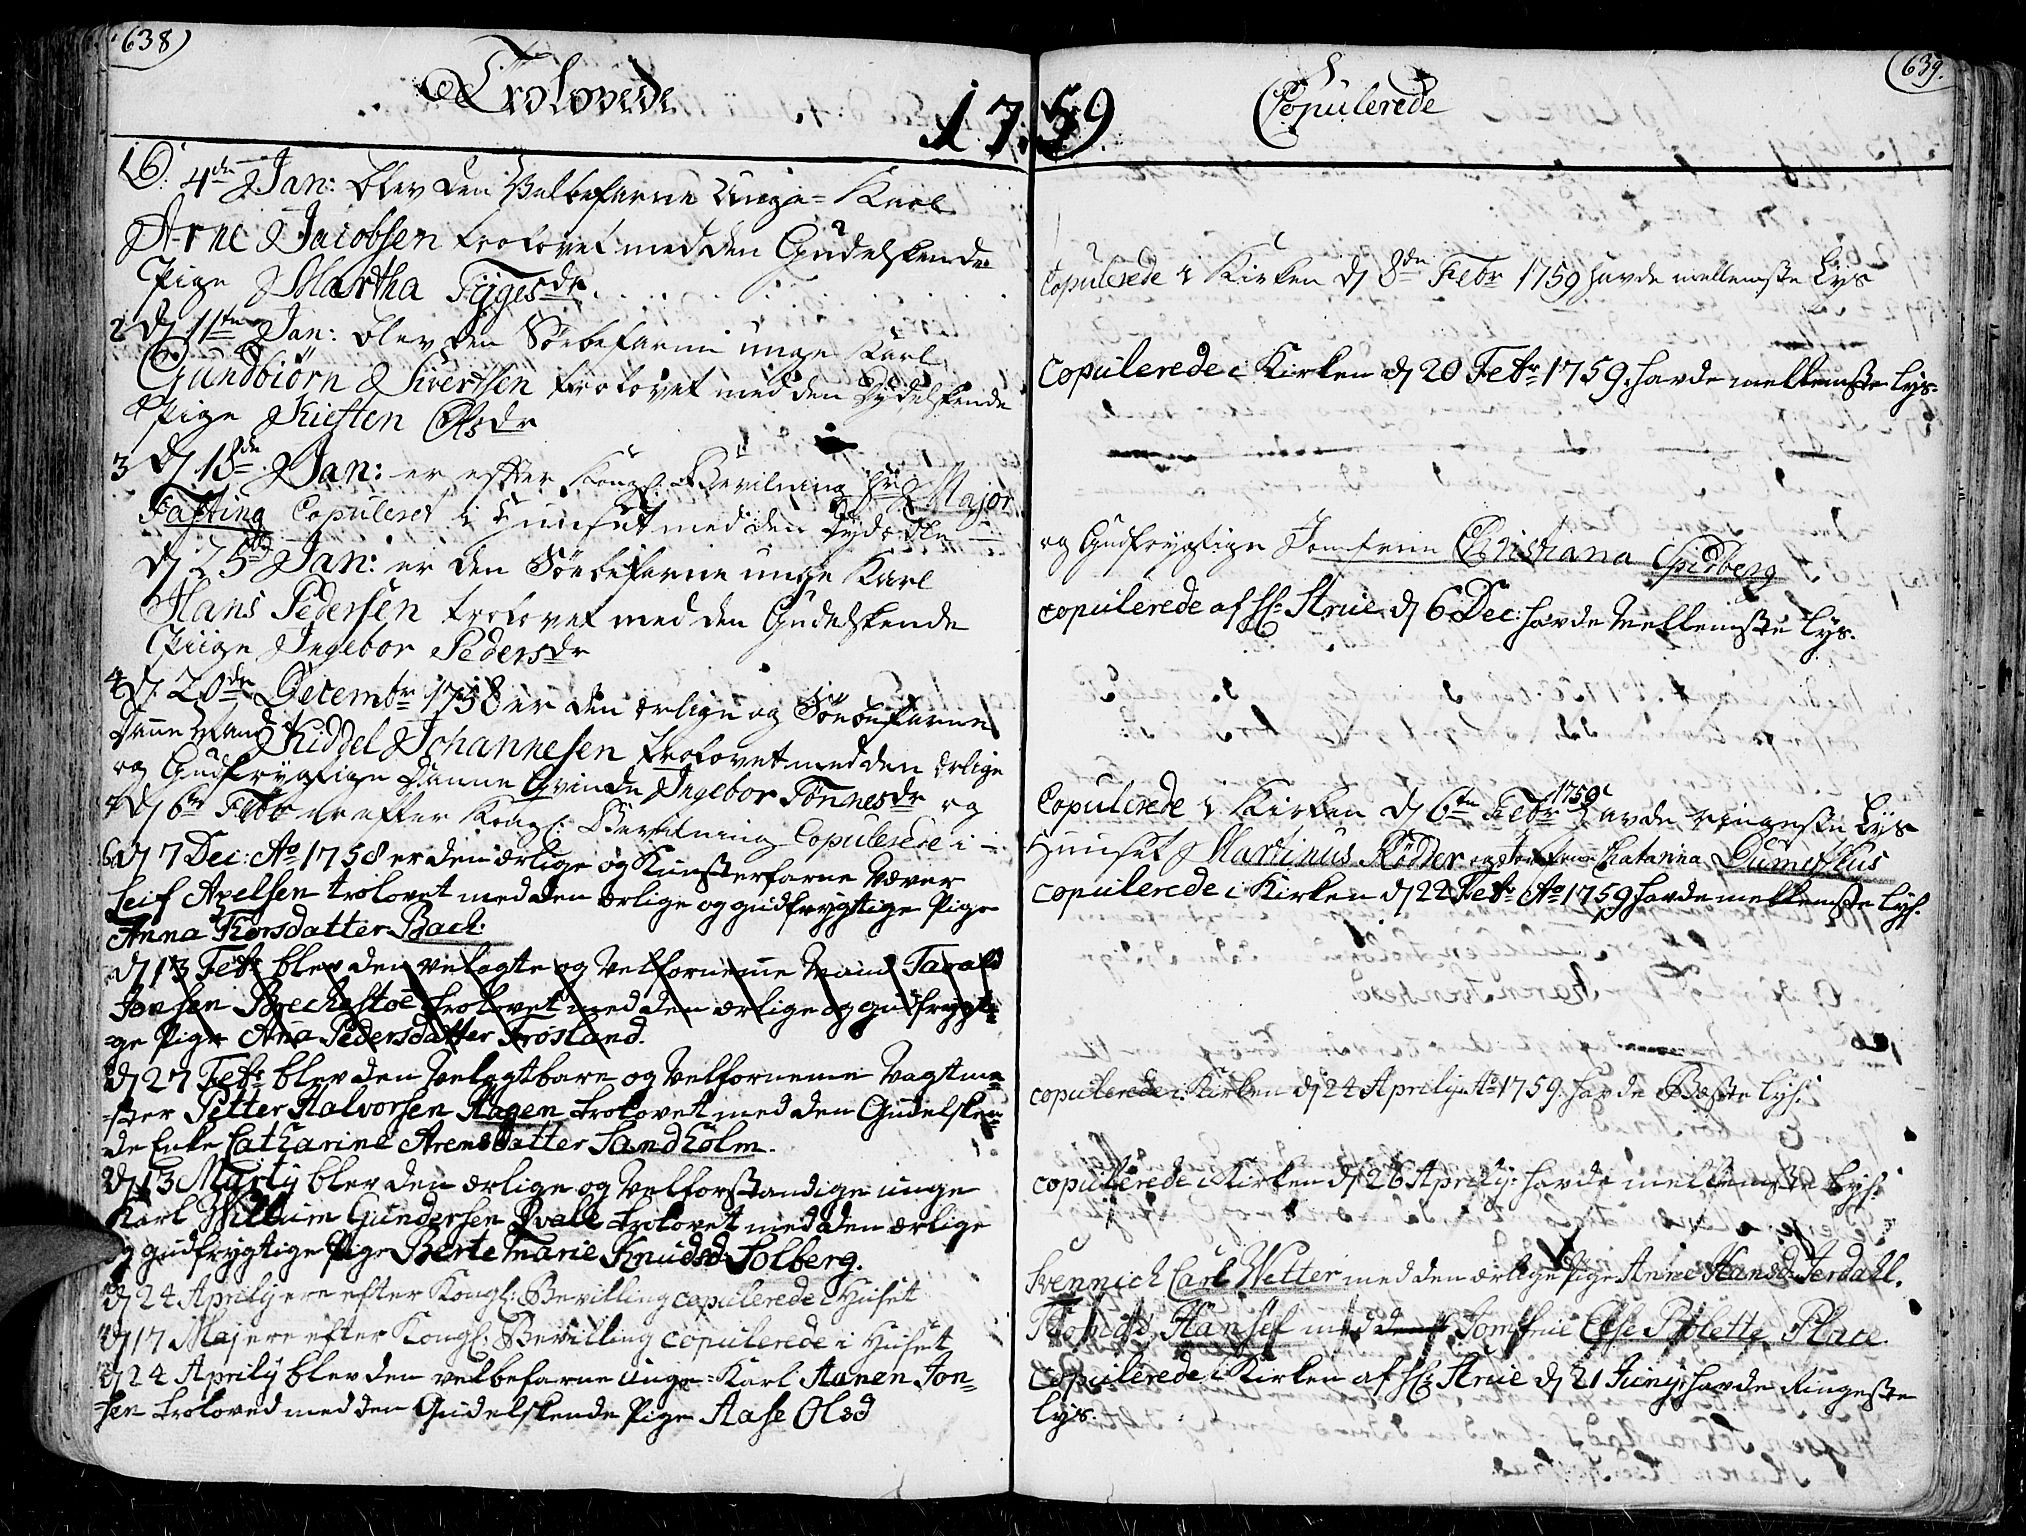 638)
Trolovede
1759
D. 4de Jan: blev den Velbefarne Unge-Karl
Arne Jacobsen trolovet med den Gudelskende
Pige Martha Tygesdr.
2 D. 11te Jan: blev den Söebefarne unge Karl
Gundbiörn Siversen trolovet med den Dydelskende
Pige Kisten Olsdr
3 D. 18de Jan: er efter Kongl: Bevilning Hr Major
Fasting Copuleret i Huuset med den Dyd-Ædle
D. 25de Jan: er den Söebefarne unge Karl
Hans Pedersen trolovet med den Gudelskende
Piige Ingebor Pedersdr
4 D. 20de Decembr 1758 er den ærlige og Söebefarne
Danne Mand Kiddel Johannesen trolovet med den ærlige
og Gudfrygtige Danne Qvinde Ingebor Tönnesdr og
D. 6te Febr er efter Kongl: Bevilning Copulerede i
6. D. 7 Dec: Ao 1758 er den ærlige og Kunsterfarne Væver
Leif Axelsen trolovet med den ærlige og gudfrygtige Pige
Anna Thorsdatter Bach.
D. 13 Febr blev den velagte og Velfornemme Mand Tarald
Jonsen Brechestöe trolovet med den ærlige og gudfrygti-
-ge Pige Ana Pedersdatter Frösland.
D. 27 Febr blev den Velagtbare og Velforneme Vagtme-
-ster Petter Halvorsen Hagen trolovet med den Gudelsken-
de Enke Catharine Arensdatter Sandholm.
D. 13 Martij blev den ærlige og Velforstandige unge
Karl Willum Gundersen Qvalle trolovet med den ærlige
og gudfrygtige Pige Berte Marie Knudsd: Solberg.
D. 24 Aprilij ere efter Kongl: Bevilling copulerede i Huset
D. 17 Maj ere efter Kongl: Bevilling copulerede i Huset
D. 24 Aprilij blev den velbefarne Unge-Karl Aanen Jon-
-sen troloved med den Gudelskende Pige Aase Olsd
639.
Copulerede
Copulerede i Kirken d. 8de Febr 1759 havde mellemste Lys
copulerede i Kirken d. 20 Febr 1759. havde mellemste Lys.
og Gudfrygtige Jomfrue Christiana Spidberg
copulerede af Hr Strue d. 6 Dec: havde Mellemste Lys.
Copulerede i Kirken d. 6te Febr 1759 havde ringeste Lys
Huuset Martinus Rödder og Jomfrue Chatarina
copulerede i Kirken d. 22 Febr Ao 1759 havde mellemste Lys.
copulerede i Kirken d. 24 Aprilij Ao 1759. havde Beste Lys.
copulerede i Kirken d. 26 Aprilij: havde mellemste Lys.
Svennich Carl Wetter med den ærlige Pige Anne Hansd: Jerdahl.
Thomas Hansen med den Jomfrue Else Bolette
Copulerede i Kirken af Hr Strue d. 21 Junij, havde Ringeste
Lys.